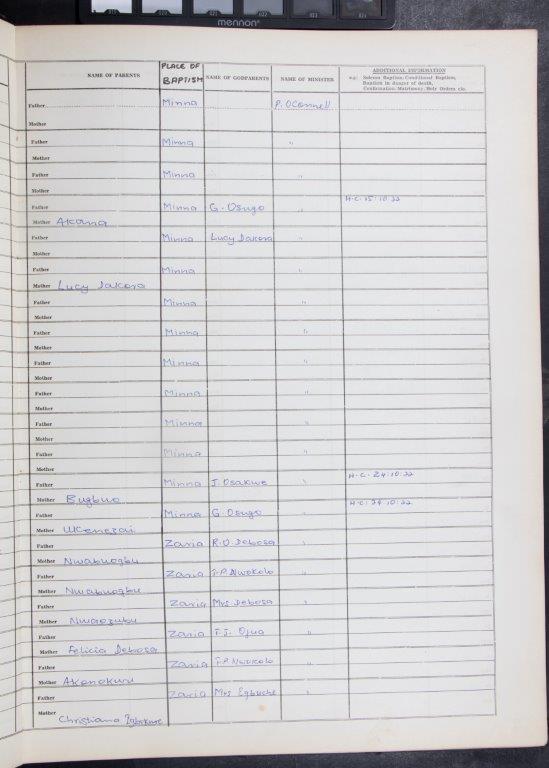 mennon
NAME OF PARENTS PLACE OF BAPTISM NAME OF GODPARENTS NAME OF MINISTER ADDITIONAL INFORMATION
e.g: Solemn Baptism, Conditional Baptism,
Baptism in danger of death,
Confirmation, Matrimony, Holy Orders etc.
Father Minna P. O'Connell
Mother
Father Minna "
Mother
Father Minna "
Mother
Father Minna G. Osugo " H.C. 15:10:22
Mother Akana
Father Minna Lucy Dakora "
Mother
Father Minna "
Mother Lucy Dakora
Father Minna "
Mother
Father Minna "
Mother
Father Minna "
Mother
Father Minna "
Mother
Father Minna "
Mother
Father Minna "
Mother
Father Minna J. Osakwe " H.C. 24:10:22
Mother Bugbuo
Father Minna G. Osugo " H.C. 24:10:22
Mother
Father Zaria R.O. Debosa "
Mother Nwabuogbu
Father Zaria J.P. Nwokolo "
Mother Nwabuogbu
Father Zaria Mrs Debosa "
Mother
Father Zaria "
Mother Felicia Debosa
Father Zaria J.P. Nwokolo "
Mother
Father Zaria Mrs Egbuche "
Mother Christiana